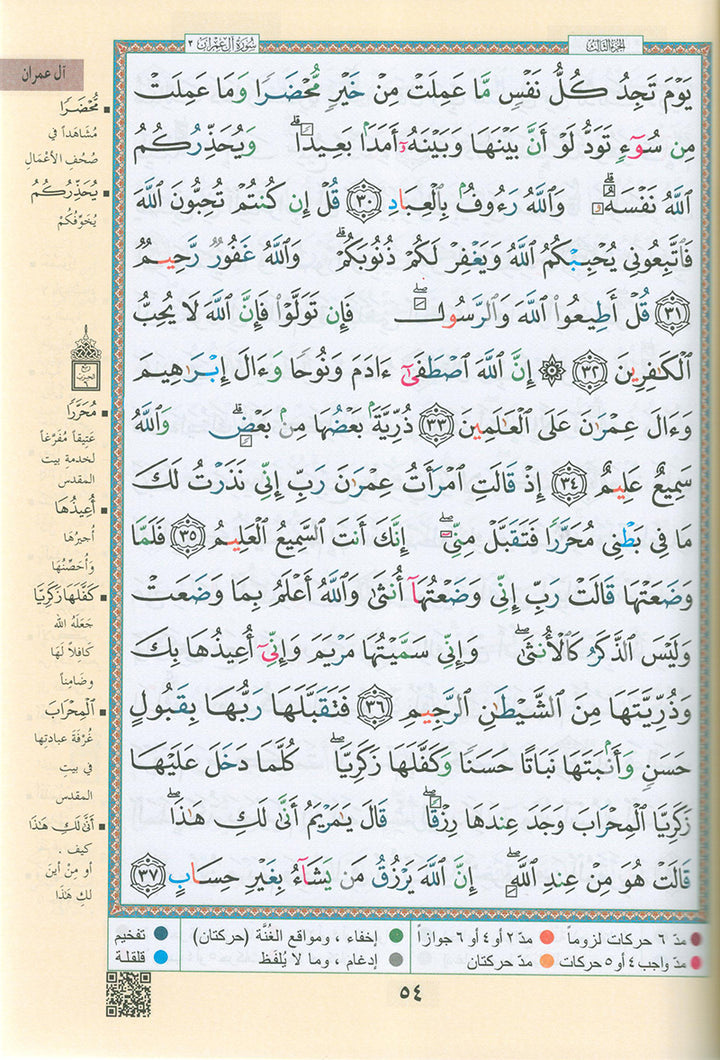 الجزء الثالث
سورة آل عمران ٣
يَوْمَ تَجِدُ كُلُّ نَفْسٍ مَّا عَمِلَتْ مِنْ خَيْرٍ مُّحْضَرًا وَمَا عَمِلَتْ
مِن سُوٓءٍ تَوَدُّ لَوْ أَنَّ بَيْنَهَا وَبَيْنَهُۥٓ أَمَدًۢا بَعِيدًا ۗ وَيُحَذِّرُكُمُ
ٱللَّهُ نَفْسَهُۥ ۗ وَٱللَّهُ رَءُوفٌۢ بِٱلْعِبَادِ ٣٠ قُلْ إِن كُنتُمْ تُحِبُّونَ ٱللَّهَ
فَٱتَّبِعُونِي يُحْبِبْكُمُ ٱللَّهُ وَيَغْفِرْ لَكُمْ ذُنُوبَكُمْ ۗ وَٱللَّهُ غَفُورٌ رَّحِيمٌ
٣١ قُلْ أَطِيعُوا۟ ٱللَّهَ وَٱلرَّسُولَ ۖ فَإِن تَوَلَّوْا۟ فَإِنَّ ٱللَّهَ لَا يُحِبُّ
ٱلْكَٰفِرِينَ ٣٢ ۞ إِنَّ ٱللَّهَ ٱصْطَفَىٰٓ ءَادَمَ وَنُوحًا وَءَالَ إِبْرَٰهِيمَ
وَءَالَ عِمْرَٰنَ عَلَى ٱلْعَٰلَمِينَ ٣٣ ذُرِّيَّةًۢ بَعْضُهَا مِنۢ بَعْضٍ ۗ وَٱللَّهُ
سَمِيعٌ عَلِيمٌ ٣٤ إِذْ قَالَتِ ٱمْرَأَتُ عِمْرَٰنَ رَبِّ إِنِّي نَذَرْتُ لَكَ
مَا فِي بَطْنِي مُحَرَّرًا فَتَقَبَّلْ مِنِّيٓ ۖ إِنَّكَ أَنتَ ٱلسَّمِيعُ ٱلْعَلِيمُ ٣٥ فَلَمَّا
وَضَعَتْهَا قَالَتْ رَبِّ إِنِّي وَضَعْتُهَآ أُنثَىٰ وَٱللَّهُ أَعْلَمُ بِمَا وَضَعَتْ
وَلَيْسَ ٱلذَّكَرُ كَٱلْأُنثَىٰ ۖ وَإِنِّي سَمَّيْتُهَا مَرْيَمَ وَإِنِّيٓ أُعِيذُهَا بِكَ
وَذُرِّيَّتَهَا مِنَ ٱلشَّيْطَٰنِ ٱلرَّجِيمِ ٣٦ فَتَقَبَّلَهَا رَبُّهَا بِقَبُولٍ
حَسَنٍ وَأَنۢبَتَهَا نَبَاتًا حَسَنًا وَكَفَّلَهَا زَكَرِيَّا ۖ كُلَّمَا دَخَلَ عَلَيْهَا
زَكَرِيَّا ٱلْمِحْرَابَ وَجَدَ عِندَهَا رِزْقًا ۖ قَالَ يَٰمَرْيَمُ أَنَّىٰ لَكِ هَٰذَا ۖ
قَالَتْ هُوَ مِنْ عِندِ ٱللَّهِ ۖ إِنَّ ٱللَّهَ يَرْزُقُ مَن يَشَآءُ بِغَيْرِ حِسَابٍ ٣٧
آل عمران
مُّحْضَرًا
مُشَاهَداً في
صُحُفِ الأَعْمَالِ
يُحَذِّرُكُمُ
يُخَوِّفُكُمْ
مُحَرَّرًا
عَتِيقاً مُفَرَّغاً
لخدمةِ بيت
المقدس
أُعِيذُهَا
أُجِيرُهَا
وَأُحَصِّنُهَا
كَفَّلَهَا زَكَرِيَّا
جَعَلَهُ الله
كَافِلاً لَهَا
وضَامِناً
ٱلْمِحْرَابَ
غُرْفَةَ عبادتِها
في بيتِ
المقدس
أَنَّىٰ لَكِ هَٰذَا
كيف .
أو مِنْ أينَ
لكِ هَذَا
مدّ ٦ حركات لزوماً مدّ ٢ أو ٤ أو ٦ جوازاً إخفاء ، ومواقع الغُنَّة (حركتان) تفخيم
مدّ واجب ٤ أو ٥ حركات مدّ حركتان إدغام ، وما لا يُلفَظ قلقلة
٥٤